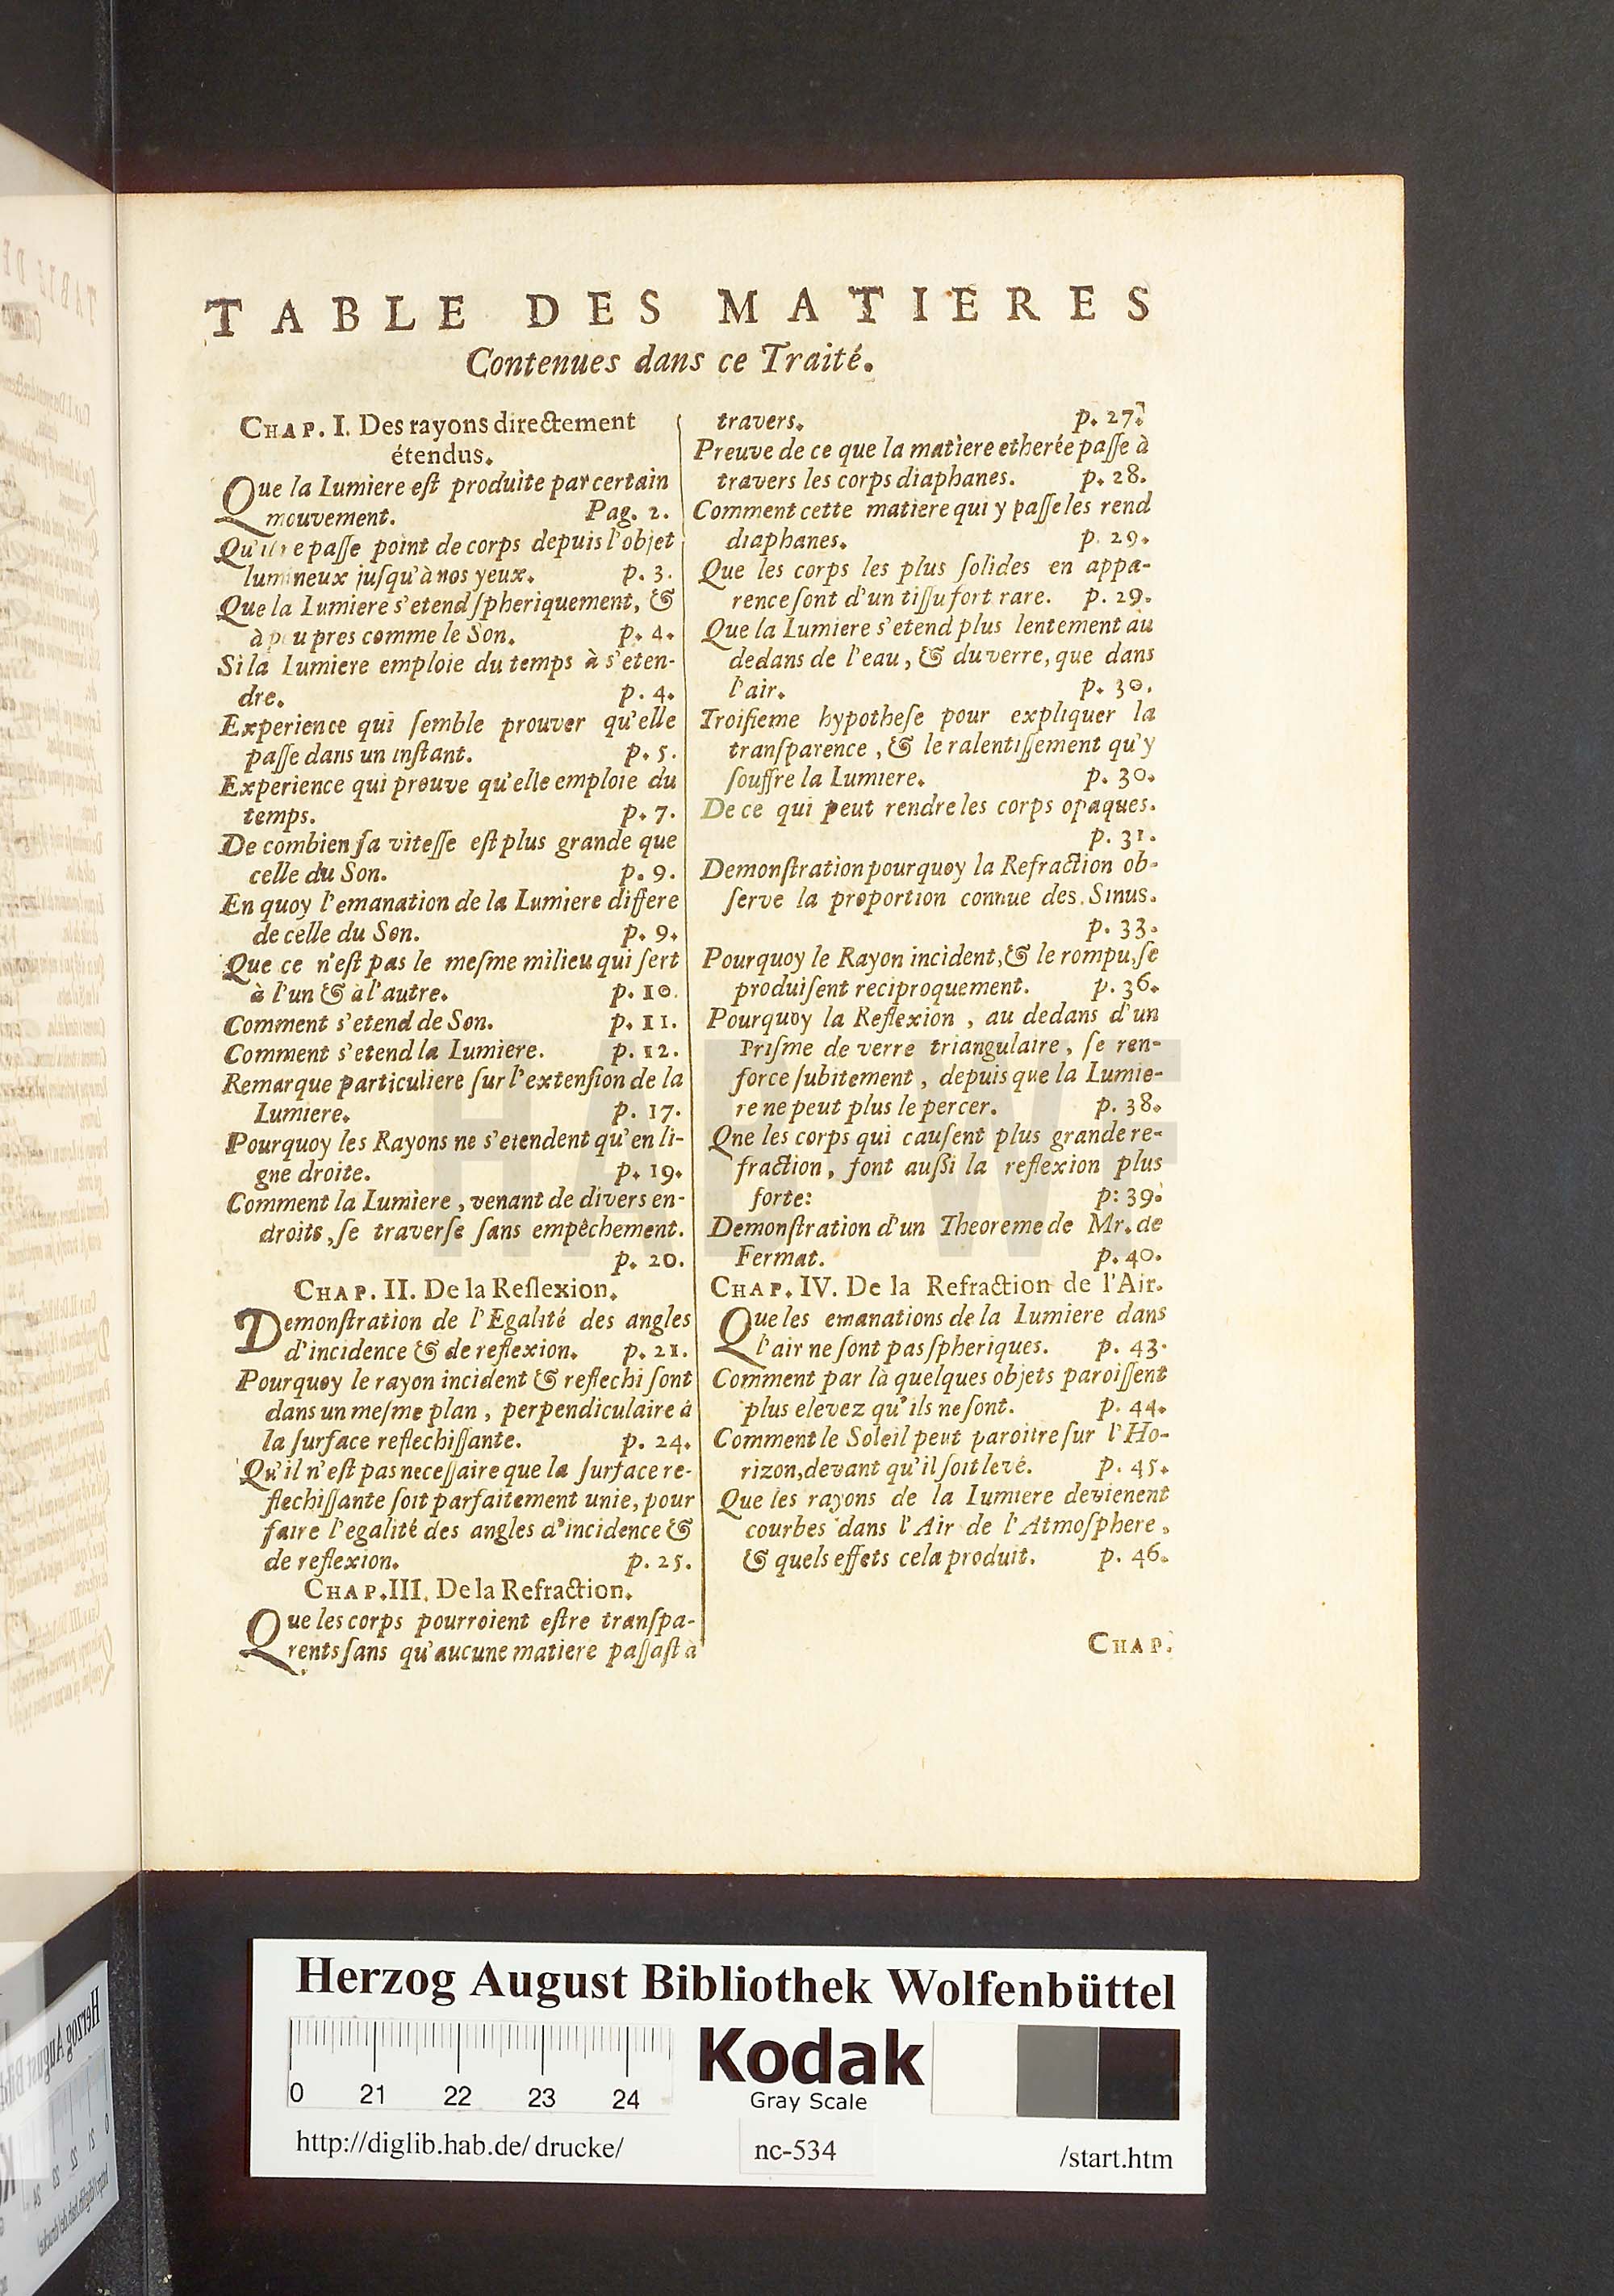 TABLE DES MATIERES
Contenues dans ce Traité.
CHAP. I. Des rayons directement
étendus.
Que la Lumiere eſt produite par certain
mouvement. Pag. 2.
Qu'il ne paſſe point de corps depuis l'objet
lumineux juſqu'à nos yeux. p. 3.
Que la Lumiere s'etend ſpheriquement, &
à peu pres comme le Son. p. 4.
Si la Lumiere emploie du temps à s'eten-
dre. p. 4.
Experience qui ſemble prouver qu'elle
paſſe dans un inſtant. p. 5.
Experience qui preuve qu'elle emploie du
temps. p. 7.
De combien ſa viteſſe eſt plus grande que
celle du Son. p. 9.
En quoy l'emanation de la Lumiere differe
de celle du Son. p. 9.
Que ce n'eſt pas le meſme milieu qui ſert
à l'un & à l'autre. p. 10.
Comment s'etend de Son. p. 11.
Comment s'etend la Lumiere. p. 12.
Remarque particuliere ſur l'extenſion de la
Lumiere. p. 17.
Pourquoy les Rayons ne s'etendent qu'en li-
gne droite. p. 19.
Comment la Lumiere, venant de divers en-
droits, ſe traverſe ſans empêchement.
p. 20.
CHAP. II. De la Reflexion.
Demonſtration de l'Egalité des angles
d'incidence & de reflexion. p. 21.
Pourquoy le rayon incident & reflechi ſont
dans un meſme plan, perpendiculaire à
la ſurface reflechiſſante. p. 24.
Qu'il n'eſt pas neceſſaire que la ſurface re-
flechiſſante ſoit parfaitement unie, pour
faire l'egalité des angles d'incidence &
de reflexion. p. 25.
CHAP. III. De la Refraction.
Que les corps pourroient eſtre tranſpa-
rents ſans qu'aucune matiere paſſaſt à
travers. p. 27.
Preuve de ce que la matiere etherée paſſe à
travers les corps diaphanes. p. 28.
Comment cette matiere qui y paſſe les rend
diaphanes. p. 29.
Que les corps les plus ſolides en appa-
rence ſont d'un tiſſu fort rare. p. 29.
Que la Lumiere s'etend plus lentement au
dedans de l'eau, & du verre, que dans
l'air. p. 30.
Troiſieme hypotheſe pour expliquer la
tranſparence, & le ralentiſſement qu'y
ſouffre la Lumiere. p. 30.
De ce qui peut rendre les corps opaques.
p. 31.
Demonſtration pourquoy la Refraction ob-
ſerve la proportion connue des Sinus.
p. 33.
Pourquoy le Rayon incident, & le rompu, ſe
produiſent reciproquement. p. 36.
Pourquoy la Reflexion, au dedans d'un
Priſme de verre triangulaire, ſe ren-
force ſubitement, depuis que la Lumie-
re ne peut plus le percer. p. 38.
Qne les corps qui cauſent plus grande re-
fraction, font auſſi la reflexion plus
forte: p: 39.
Demonſtration d'un Theoreme de Mr. de
Fermat. p. 40.
CHAP. IV. De la Refraction de l'Air.
Que les emanations de la Lumiere dans
l'air ne ſont pas ſpheriques. p. 43.
Comment par là quelques objets paroiſſent
plus elevez qu'ils ne ſont. p. 44.
Comment le Soleil peut paroitre ſur l'Ho-
rizon, devant qu'il ſoit levé. p. 45.
Que les rayons de la Lumiere devienent
courbes dans l'Air de l'Atmoſphere,
& quels effets cela produit. p. 46.
CHAP.
HAB WF
Herzog August Bibliothek Wolfenbüttel
0 21 22 23 24
Kodak
Gray Scale
http://diglib.hab.de/drucke/ nc-534 /start.htm